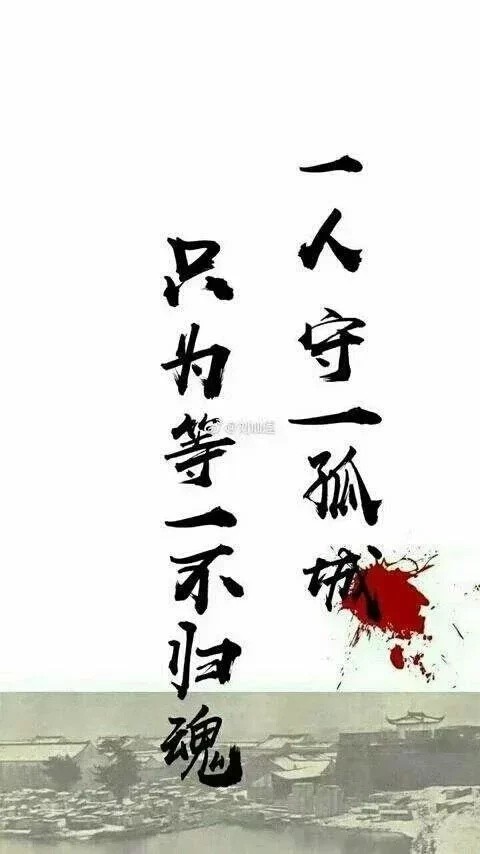 一人守一孤城
只为等一不归魂